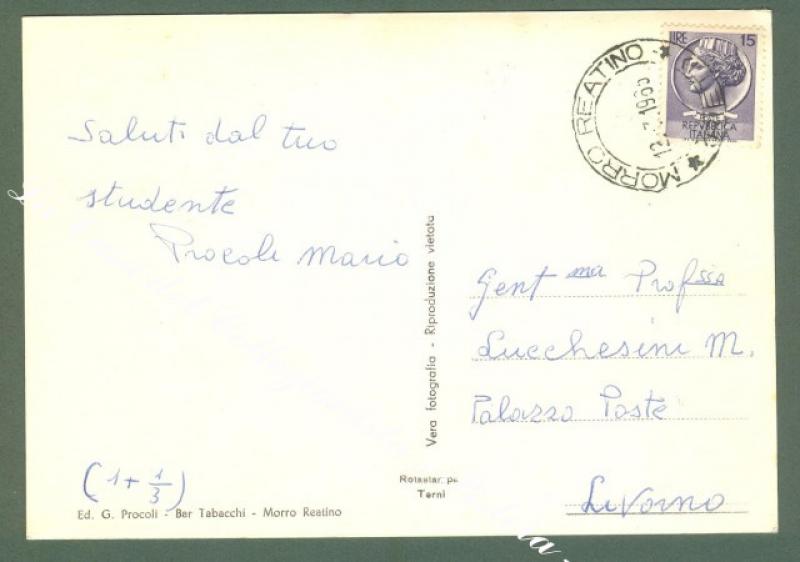 LIRE 15
REPVBBLICA
ITALIANA
MORRO REATINO
Saluti dal tuo
studente
Procoli Mario
Vera fotografia - Riproduzione vietata
Gent ma Prof ssa
Lucchesini M.
Palazzo Poste
Livorno
(1 + 1/3)
Rotastar. pe
Terni
Ed. G. Procoli - Bar Tabacchi - Morro Reatino